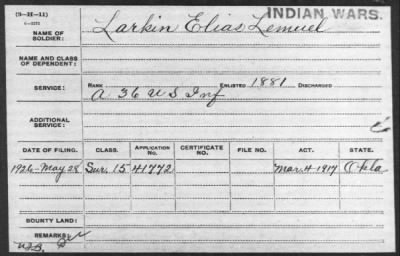 (3-H-11)
INDIAN WARS.
NAME OF SOLDIER: Larkin Elias Lemuel
NAME AND CLASS OF DEPENDENT:
SERVICE: RANK ENLISTED 1881 DISCHARGED
A 36 U S Inf
ADDITIONAL SERVICE:
DATE OF FILING. CLASS. APPLICATION NO. CERTIFICATE NO. FILE NO. ACT. STATE.
1926-May 28 Sur. 15 41772 Mar. 4 1917 Okla
BOUNTY LAND:
REMARKS: